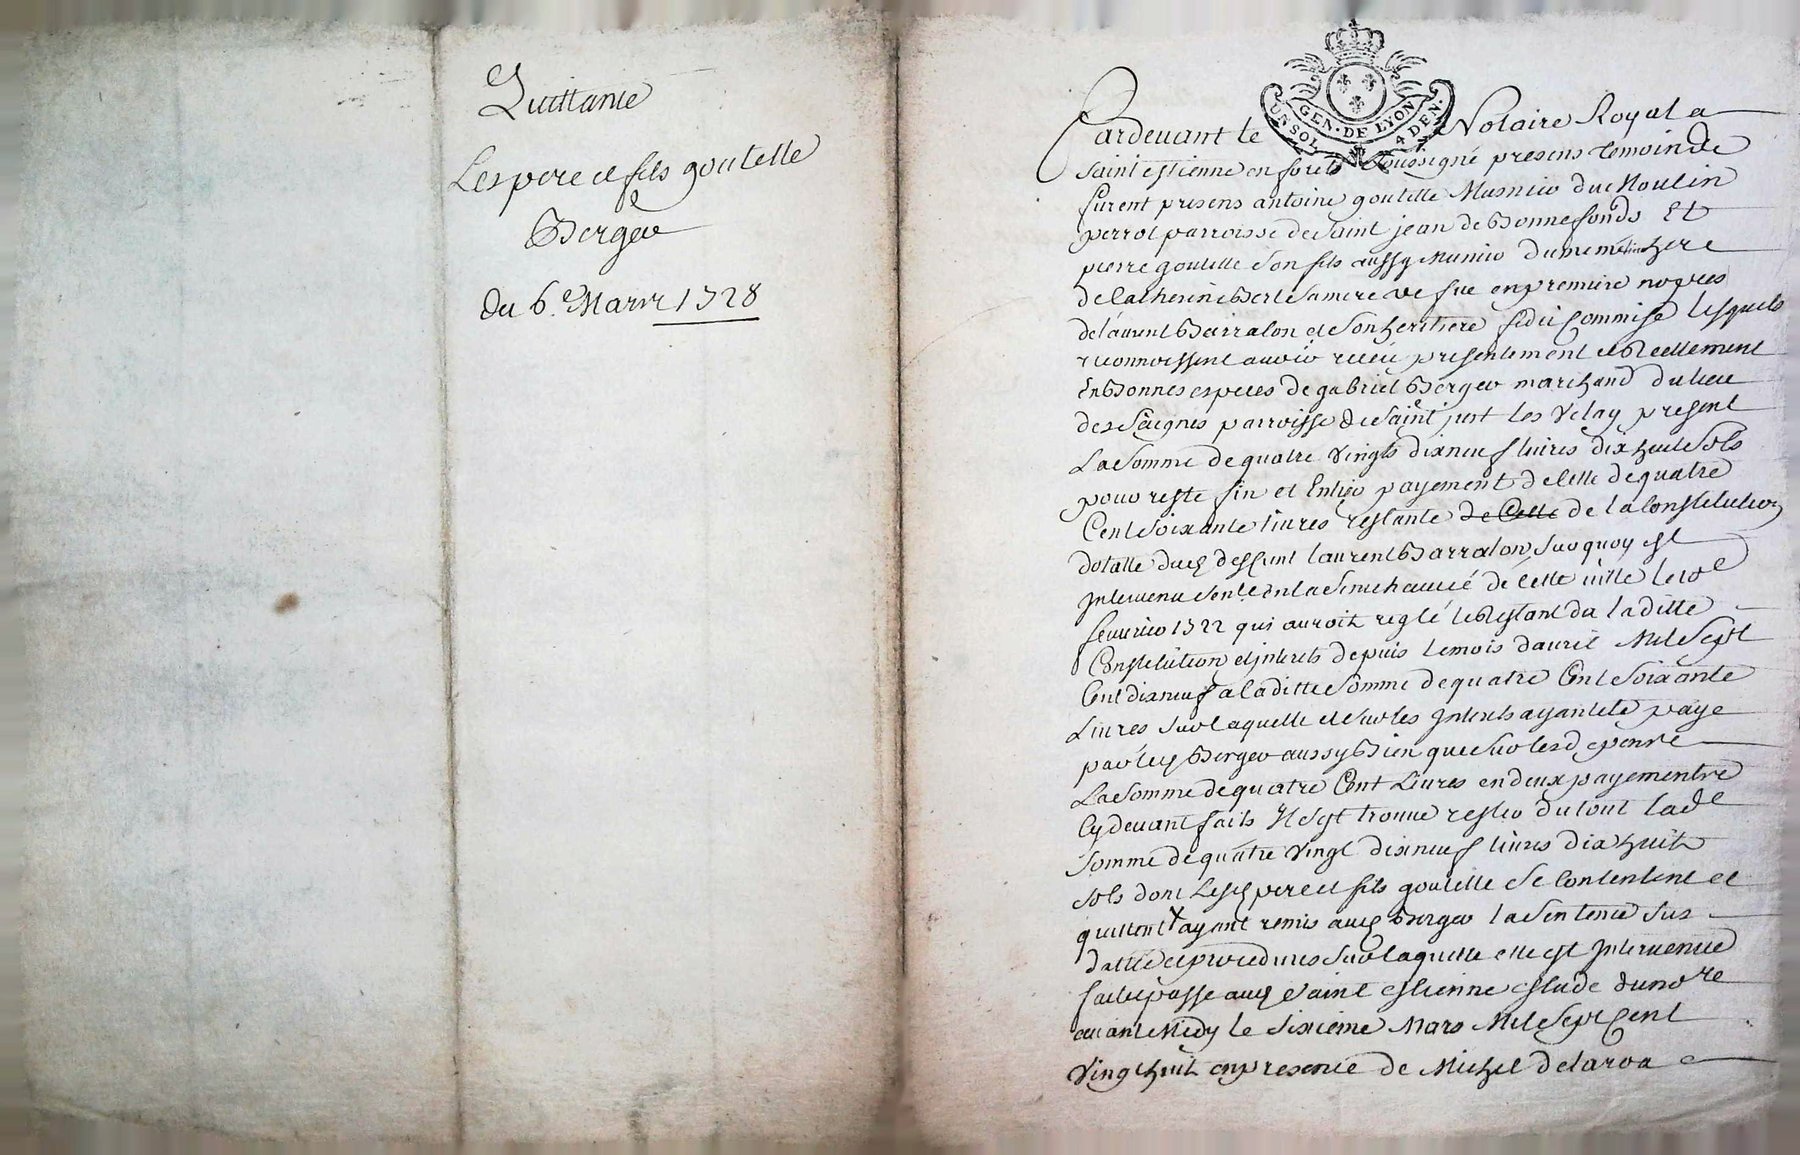 Quittance
Les pere et fils goutelle
a
Berger
du 6.e Mars 1728
GEN. DE LYON
UN SOL 4 DEN.
Pardevant le Notaire Royal a
Saint estienne en forest soussigné presens temoins
furent presens antoine goutelle Musnier du Moulin
perrot parroisse de Saint jean de Bonnefonds Et
pierre goutelle son fils aussy Munier du meme
de Catherine sa mere en premiere nopces
de laurent Barralon et son heritiere fideicommise lesquels
reconnoissent avoir receu presentement et Reellement
En Bonnes especes de gabriel Berger marchand du lieu
des parroisse de Saint just les Velay present
La Somme de quatre vingts dix neuf livres dix huit Sols
pour reste fin et Entier payement de Celle de quatre
Cent Soixante livres restante de Celle de la Constitution
dotalle dud deffunt laurent Barralon, sur quoy est
Intervenu Sentce. en la Senechaucé de Cette ville le
fevrier 1722 qui auroit reglé le Restant de laditte
Constitution et interets depuis le mois davril Mil Sept
Cent dix neuf a la ditte Somme de quatre Cent Soixante
Livres sur laquelle et sur les Interets ayant eté payé
par led Berger aussy Bien que sur les depens
La Somme de quatre Cent Livres en deux payements
Cy devant faits Il S'est trouvé rester du tout lade
Somme de quatre vingt dix neuf livres dix huit
sols dont Lesd pere et fils goutelle Se Contentent et
quittent ayant remis aud Berger la Sentence sus
datte et procedures sur laquelle elle est Intervenue
fait et passe aud Saint estienne estude du nore
avant Midy le sixieme Mars Mil Sept Cent
Vingt huit en presence de Michel delaroa